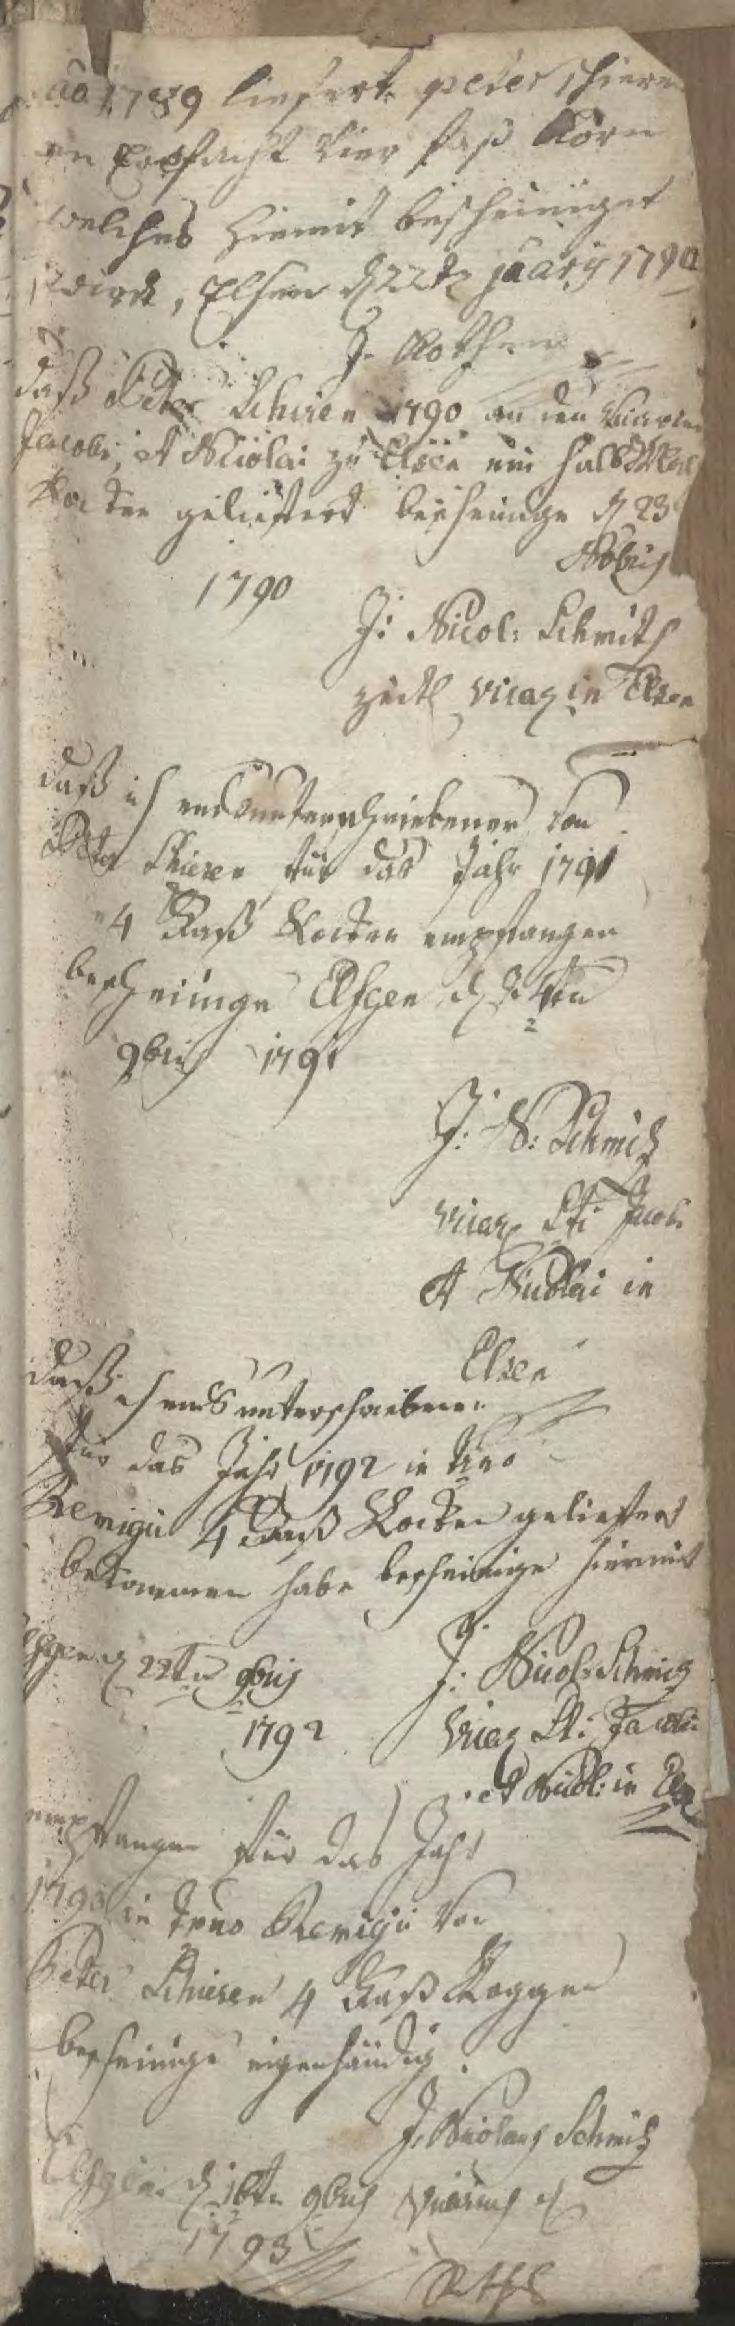 ao 1789 liefert peter schiere
an Erbfacht vier faß Korn
welches hiemit bescheiniget
wird, Elsen d 22te jäarÿ 1790
J. Rothen
daß Peter Schiren 1790 an den Vicarien
Jacobi et Nicolai zu Elsen ein halb Mal
Rocken geliefferd bescheinige d 23
9bris
1790
J: Nicol: Schmitz
zeitl Vicar in Elsen
daß ich endsunterschriebener von
Peter Schieren für das Jahr 1791
4 Faß Rocken empfangen
bescheinige Elsgen d 24ten
9bris 1791
J: N: Schmitz
Vicar Sti Jacobi
et Nicolai in
Elsen
daß ich ends unterschriebener
für das Jahr 1792 in Tno
Remigii 4 Faß Rocken gelieffert
bekommen habe bescheinige hiermit
Elsgen d 22ten 9bris
J: Nicol: Schmitz
1792
Vicar Sti Jacobi
et Nicol: in Elsen
empfangen für das Jahr
1793 in Trno Remigii von
Peter Schieren 4 Faß Roggen
bescheinige eigenhändig.
J. Nicolaus Schmitz
Elsgen d 16ten 9bris Vicarius
1793